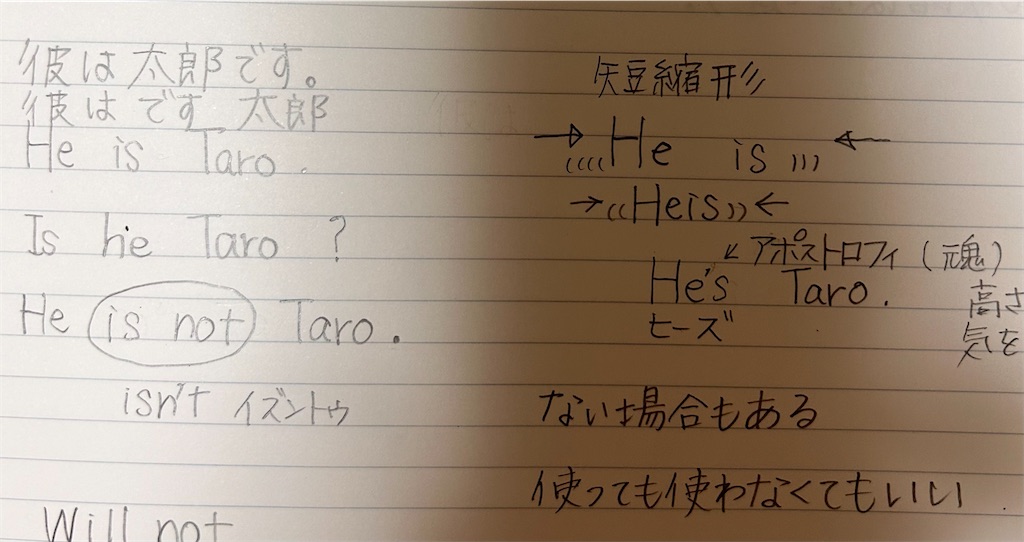 彼は太郎です。
彼は です 太郎
He is Taro.
Is he Taro?
He is not Taro.
isn't イズントゥ
Will not
短縮形
→ ((((He is ))) ←
→((Heis))←
↙アポストロフィ(魂)
He's Taro.
ヒーズ
高さ
気を
ない場合もある
使っても使わなくてもいい